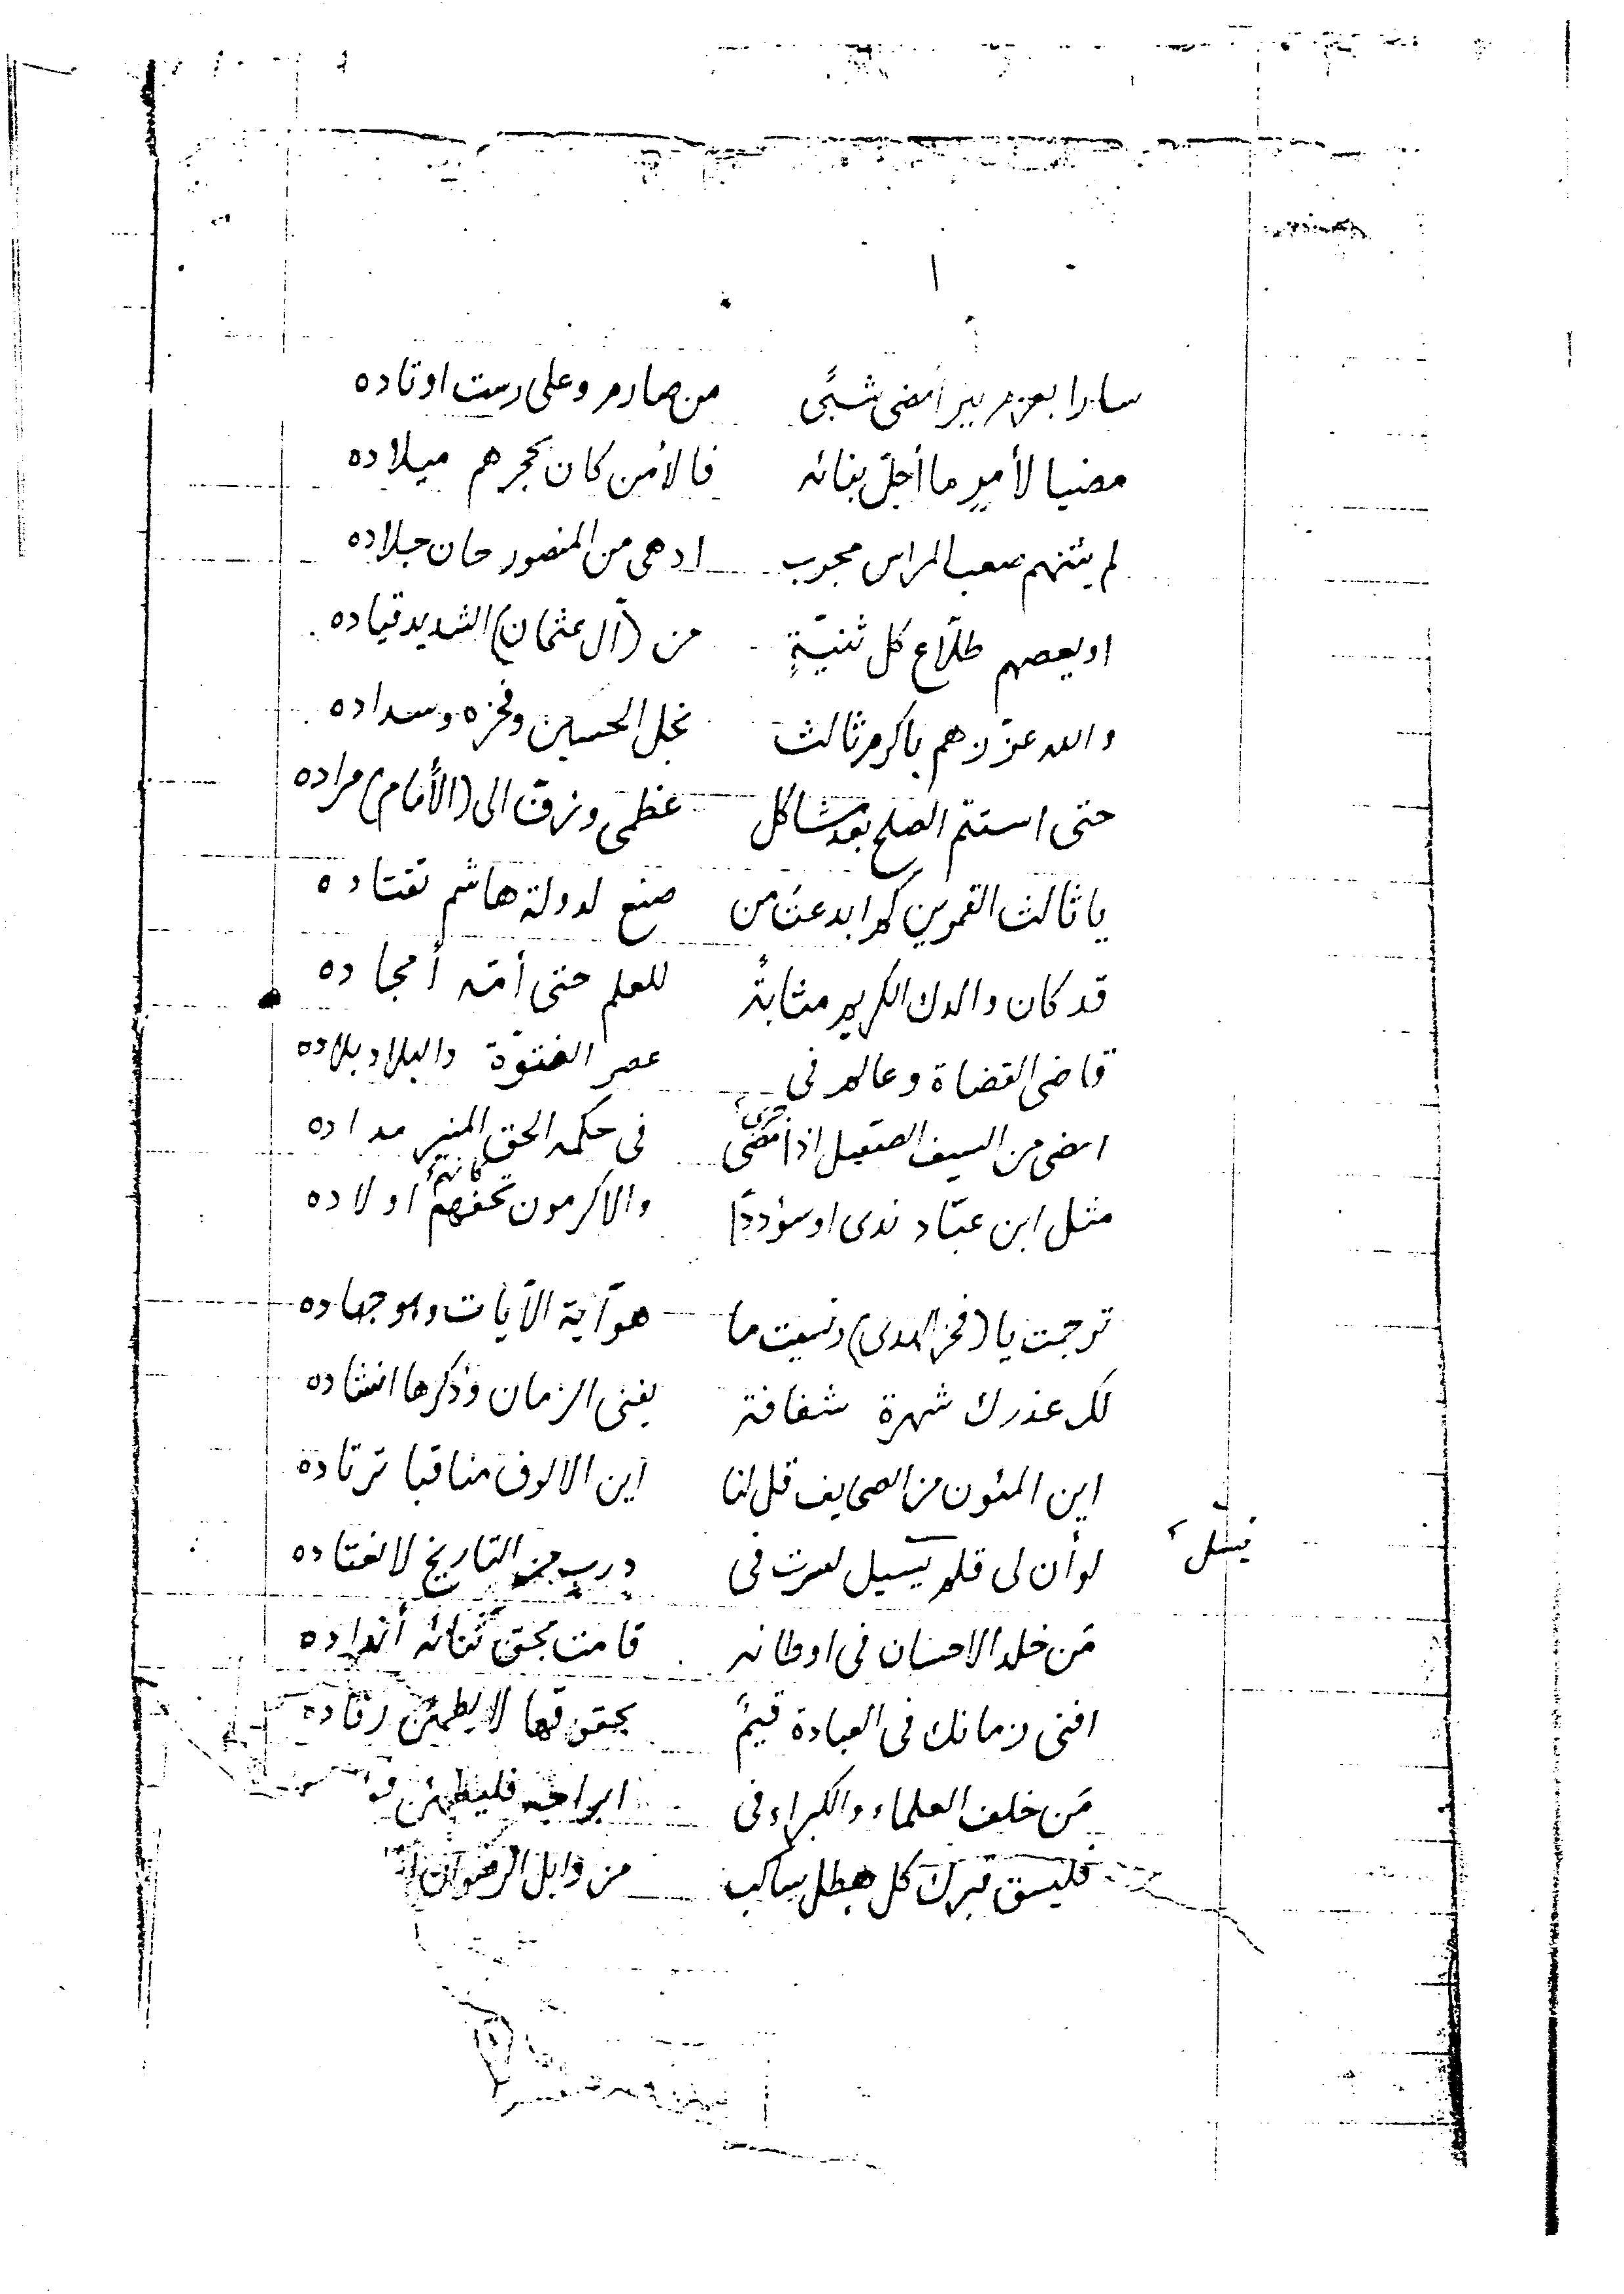 سارا بعزم نير أمضى شبًى من صارم وعلى رست اوتاده
مضيا لأمرٍ ما أجلّ بنائه فالأمن كان بحجرهم ميلاده
لم يثنهم صعب المراس مجرب ادهى من المنصور حان جلاده
او يعصهم طلّاع كل ثنيّةٍ من (آل عثمان) الشديد قياده
والله عززهم باكرم ثالث نجل الحسين وفخره وسداده
حتى استتم الصلح بعد مشاكل عظمى وزفّ الى (الأمام) مراده
يا ثالث القمرين كم ابدعت من صنع لدولة هاشم تقتاده
قد كان والدك الكريم مثابةً للعلم حتى أمّه أمجاده
قاضي القضاة وعالم في عصر الفتوّة والبلاد بلاده
امضى من السيف الصقيل اذا مضى جرى في حكمه الحق المنير مداده
مثل ابن عبّاد ندى او سؤددًا والاكرمون تحفهم كأنهم اولاده
ترجمت يا (فخر الهدى) ونسيت ما هو آية الآيات وهو جهاده
لك عذرك شهرة شفافة يفنى الزمان وذكرها انشاده
اين المئون من الصحايف قل لنا اين الالوف مناقبا ترتاده
لو أن لي قلم يسيل لعرت في دربٍ من التاريخ لا نعتاده
فيسل
مَن خلد الاحسان في اوطانه قامت بحق ثنائه أنداده
افنى زمانك في العبادة قيمً بحقوقها لا يطمئن رقاده
مَن خلف العلماء والكبراء في ابراجه فليطمئن
فليسق قبرك كل هطل ساكب من وابل الرضوان